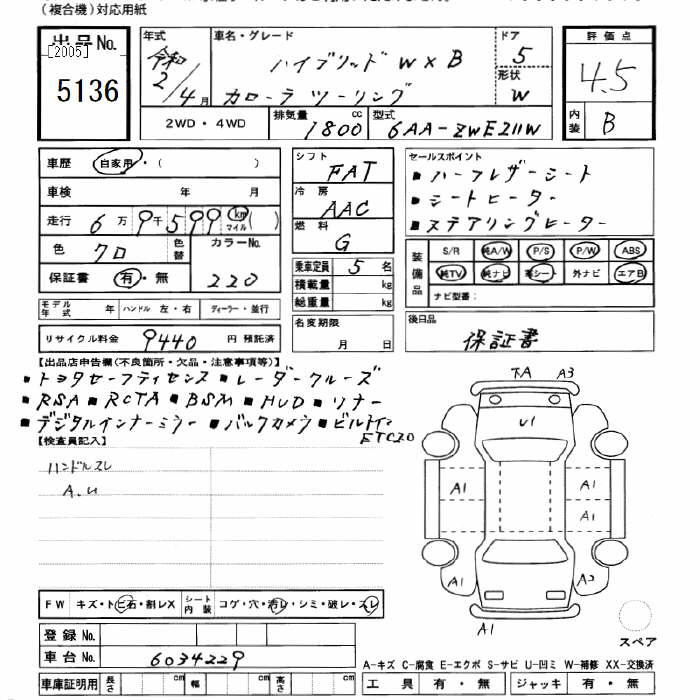 (複合機)対応用紙
出品No. [2005] 5136
年式 令和2/4月
車名・グレード ハイブリッド W×B
カローラツーリング
ドア 5
形状 W
評価点 4.5
内装 B
2WD・4WD 排気量 1800cc 型式 6AA-ZWE211W
車歴 自家用・( )
車検 年 月
走行 6万9千599 km マイル( )
色 クロ 色替 カラーNo. 220
保証書 有・無
シフト FAT
冷房 AAC
燃料 G
乗車定員 5名
積載量 kg
総重量 kg
セールスポイント
・ハーフレザーシート
・シートヒーター
・ステアリングヒーター
装備品 S/R 純A/W P/S P/W ABS
純TV 純ナビ 革シート 外ナビ エアB
ナビ型番:
モデル年式 年 ハンドル 左・右 ディーラー・並行
リサイクル料金 9440 円 預託済
名変期限 月 日
後日品 保証書
【出品店申告欄(不良箇所・欠品・注意事項等)】
・トヨタセーフティセンス ・レーダークルーズ
・RSA ・RCTA ・BSM ・HUD ・リナー
・デジタルインナーミラー ・バックカメラ ・ビルトイン
ETC2.0
【検査員記入】
ハンドルスレ
A.U
A3
U1
A1 A1
A1
A1
A1
FW キズ・トビ石・割レX シート内装 コゲ・穴・汚レ・シミ・破レ・スレ
登録No.
車台No. 6034229
スペア
A-キズ C-腐食 E-エクボ S-サビ U-凹ミ W-補修 XX-交換済
車庫証明用 長さ cm 幅 cm 高さ cm 工具 有・無 ジャッキ 有・無